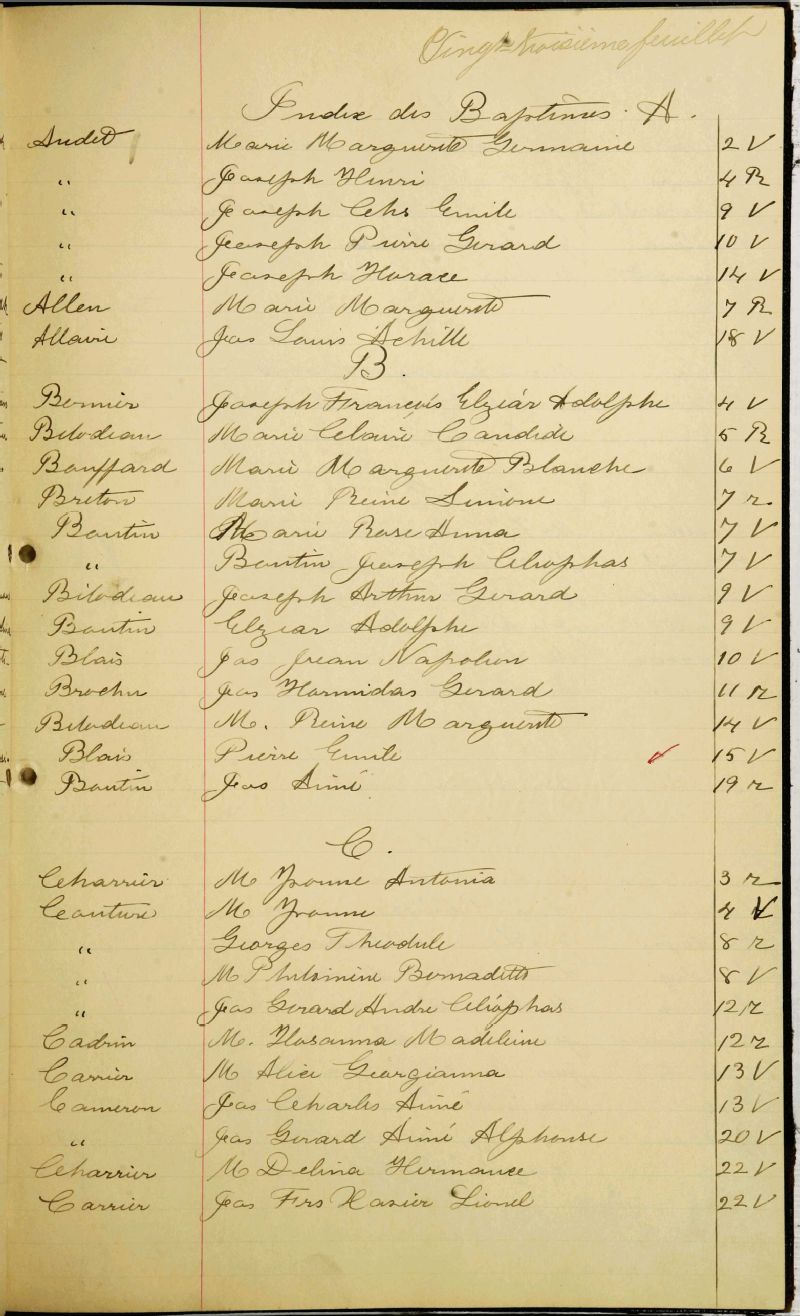 Vingt-troisième feuillet
Index des Baptêmes. A.
Audet Marie Marguerite Germaine 2 V
" Joseph Henri 4 R
" Joseph Chs Emile 9 V
" Joseph Pierre Gerard 10 V
" Joseph Horace 14 V
Allen Marie Marguerite 7 R
Allaire Jos Louis Achille 18 V
B.
Bernier Joseph François Elzéar Adolphe 4 V
Bilodeau Marie Claire Candide 5 R
Bouffard Marie Marguerite Blanche 6 V
Breton Marie Reine Simone 7 r
Boutin Marie Rose Anna 7 V
" Boutin Joseph Cléophas 7 V
Bilodeau Joseph Arthur Gerard 9 V
Boutin Elzear Adolphe 9 V
Blais Jos Jean Napoleon 10 V
Brochu Jos Hormidas Gerard 11 r
Bilodeau M. Reine Marguerite 14 V
Blais Pierre Emile ✓ 15 V
Boutin Jos Aimé 19 r
C.
Charrier M Yvonne Antonia 3 r
Couture M Yvonne 4 V
" Georges Theodule 8 r
" M Philomène Bernadette 8 V
" Jos Gerard Andre Cléophas 12 r
Cadrin M. Hosanna Madeleine 12 r
Carrier M Alice Georgianna 13 V
Cameron Jos Charles Aimé 13 V
" Jos Gerard Aimé Alphonse 20 V
Charrier M Delina Hermance 22 V
Carrier Jos Frs Xavier Lionel 22 V